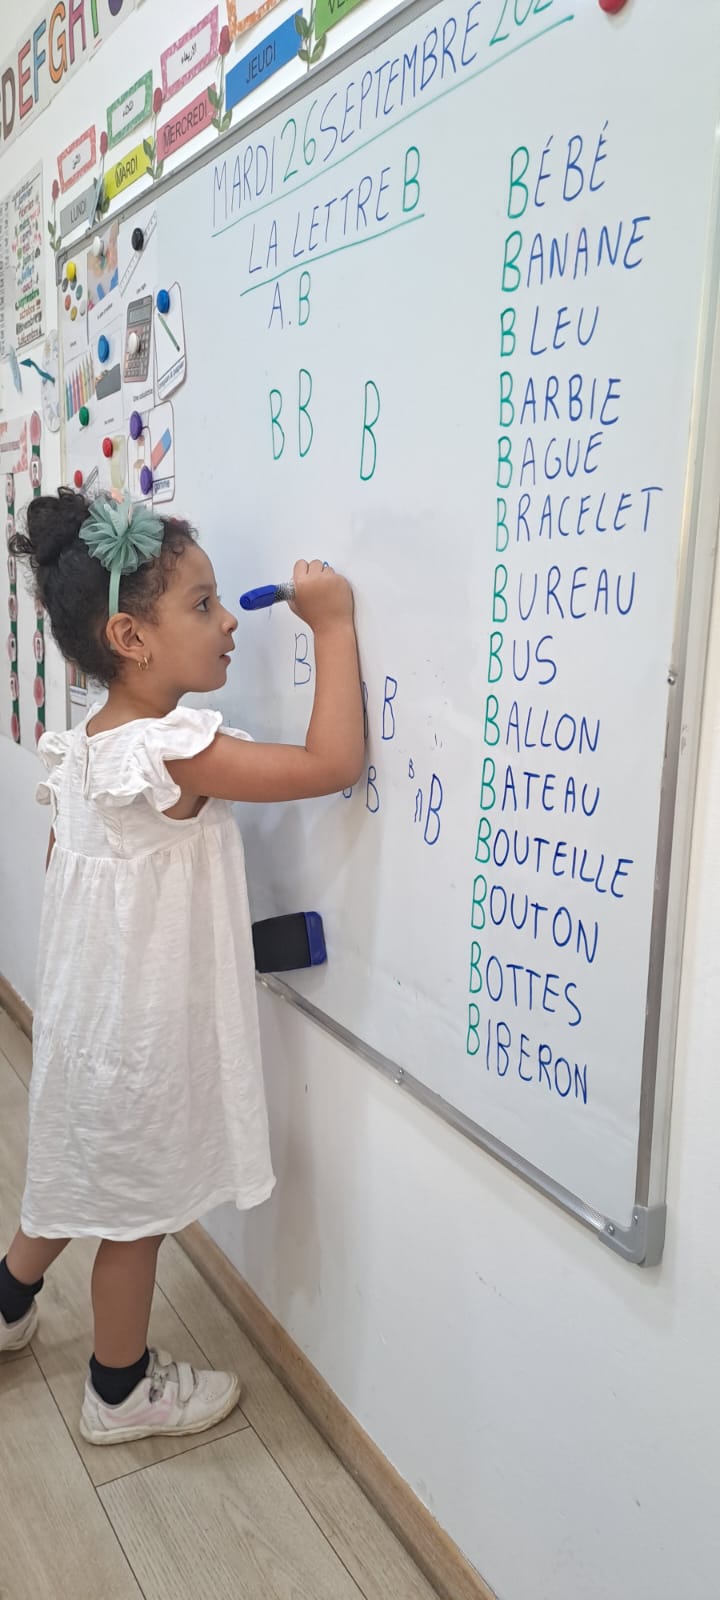 DEFGH
LUNDI
MARDI
MERCREDI
JEUDI
MARDI 26 SEPTEMBRE
LA LETTRE B
A.B
B B B
B
B
B
B
B
BÉBÉ
BANANE
BLEU
BARBIE
BAGUE
BRACELET
BUREAU
BUS
BALLON
BATEAU
BOUTEILLE
BOUTON
BOTTES
BIBERON